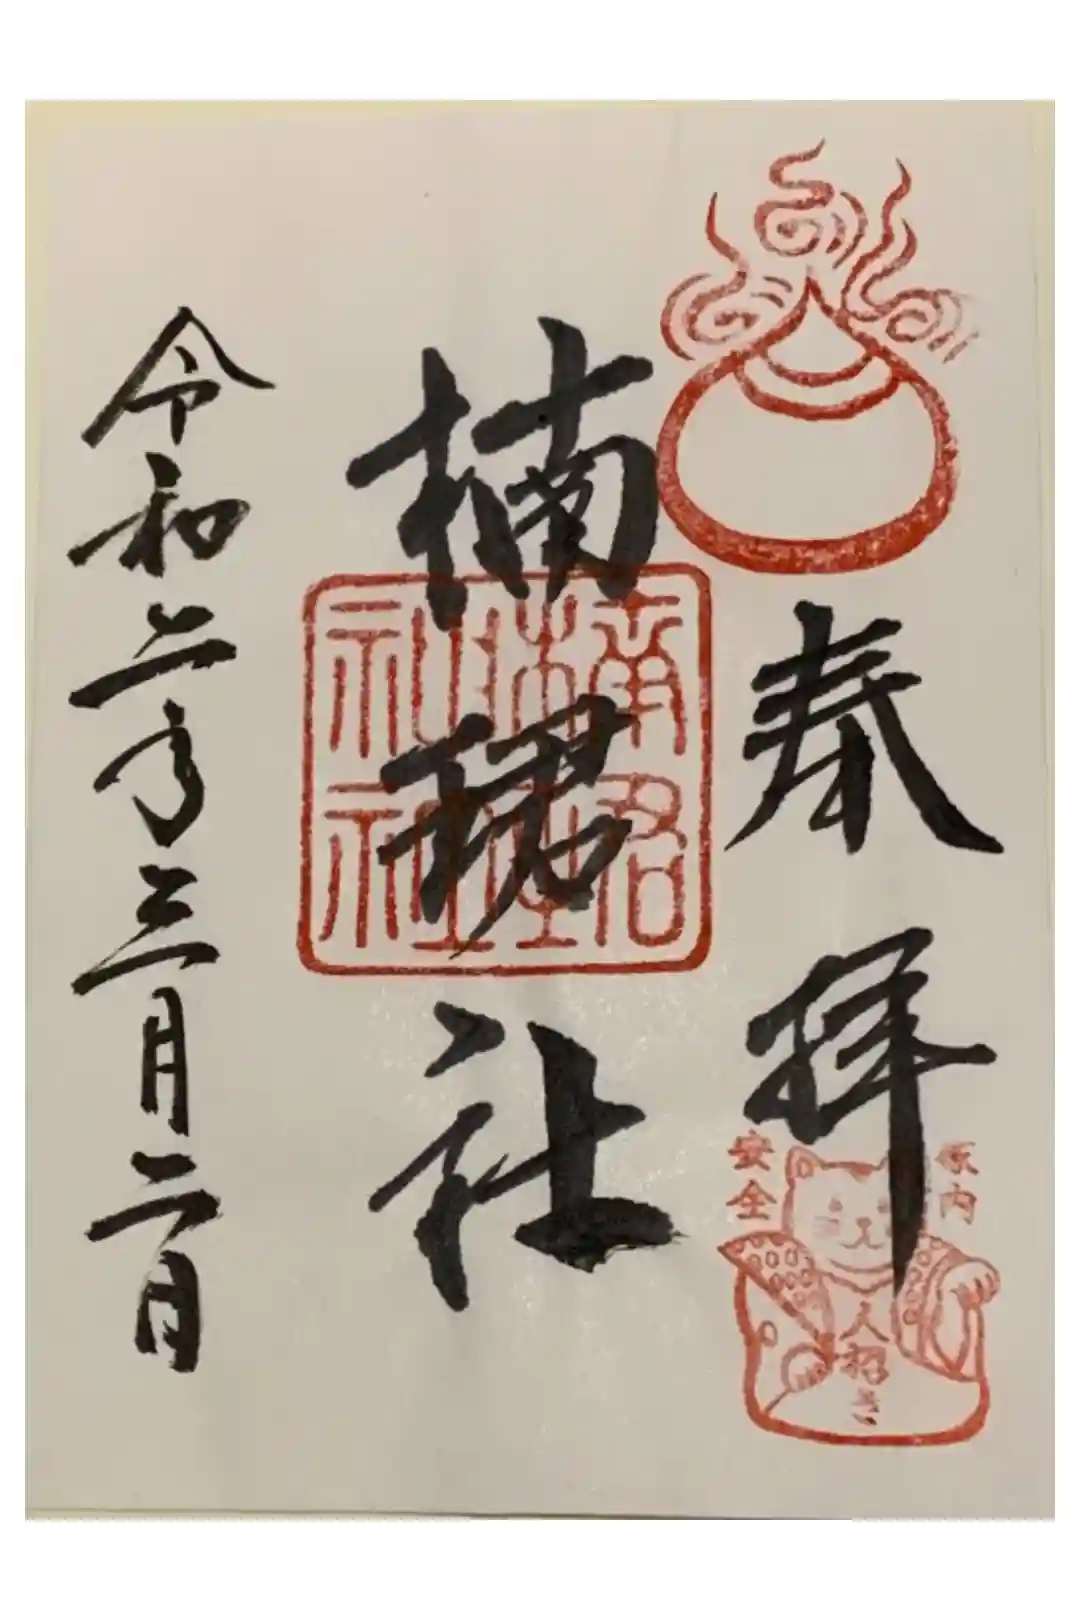 奉拝
楠珺社
令和二年三月二日
家内
安全
人招き